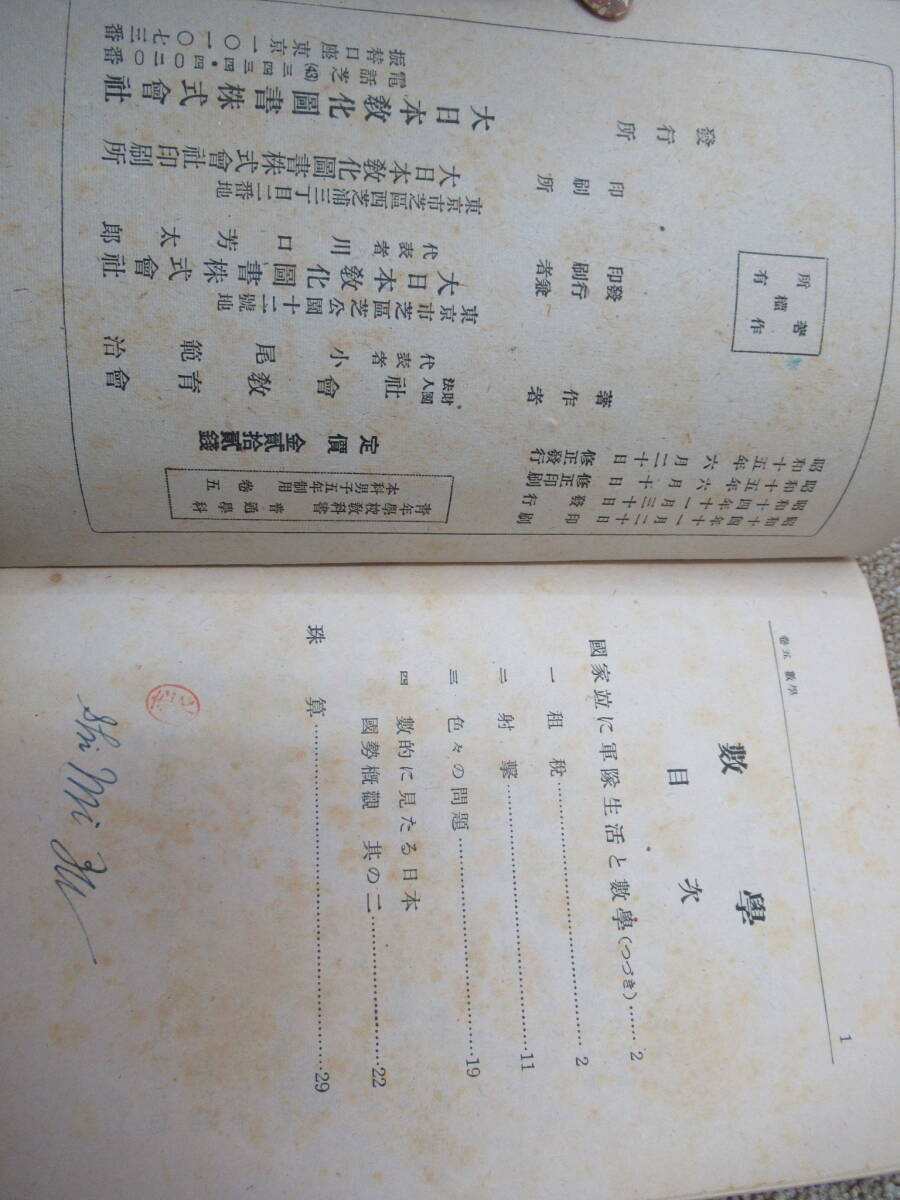 昭和十四年十一月二十日印刷
昭和十四年十一月三十日發行
昭和十五年六月十日修正印刷
昭和十五年六月二十日修正發行
青年學校敎科書 普通學科
本科男子五年制用 卷五
定價金貳拾貳錢
著作權所有
著作者
財團法人 社會敎育會
代表者 小尾範治
發行兼印刷者
東京市芝區芝公園十二號地
大日本敎化圖書株式會社
代表者 川口芳太郎
印刷所
東京市芝區西芝浦三丁目一番地
大日本敎化圖書株式會社印刷所
發行所
大日本敎化圖書株式會社
電話芝(43)三四四〇二〇番
振替口座東京一〇一〇七三番
卷五 數學
1
數學
目次
國家竝に軍隊生活と數學(つづき)……2
一 租稅……2
二 射擊……11
三 色々の問題……19
四 數的に見たる日本
國勢槪觀 其の二……22
珠算……29
Shi Mi Zu